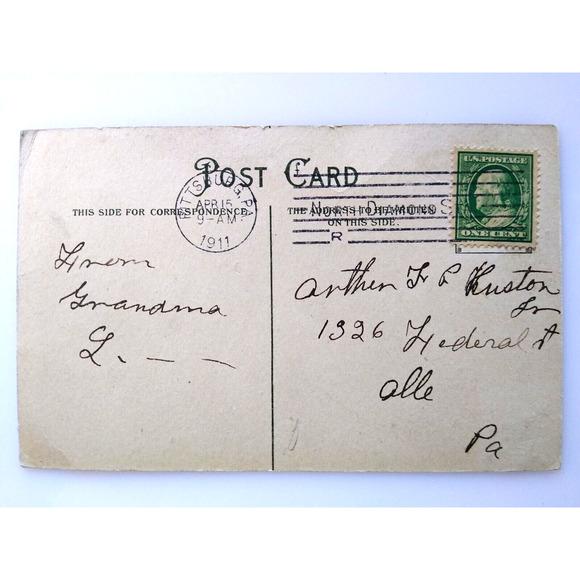 POST CARD
THIS SIDE FOR CORRESPONDENCE.
THE ADDRESS TO BE WRITTEN
ON THIS SIDE.
PITTSBURG, PA.
APR 15
9-AM
1911
NORTH DIAMOND S
R
U.S. POSTAGE
ONE CENT
From
Grandma
L. - - -
Arthur F L Huston
Jr
1326 Federal St
Alle
Pa